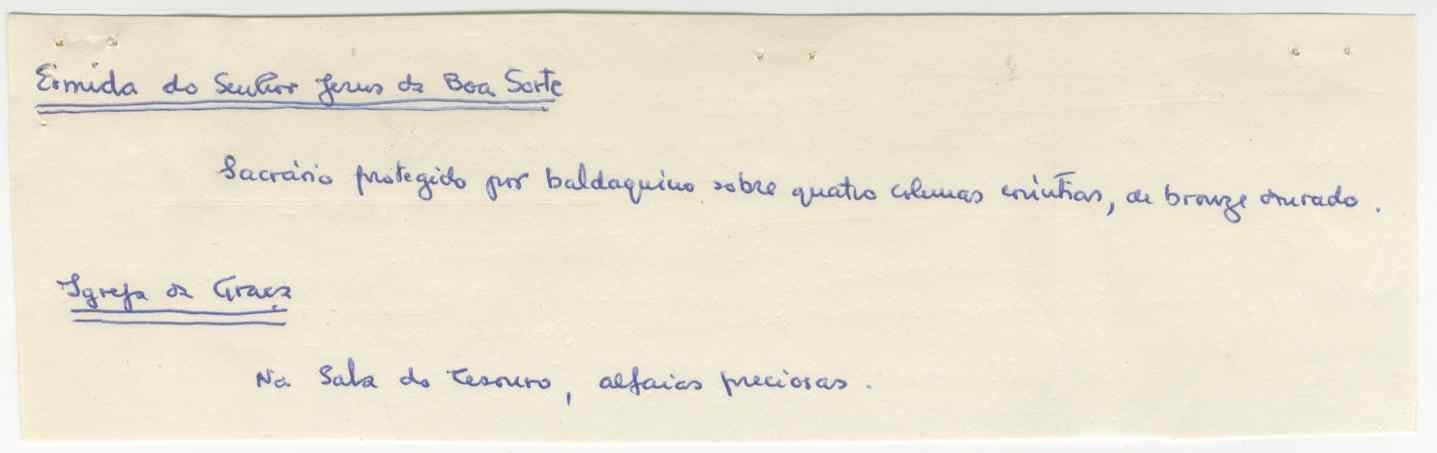 Ermida do Senhor Jesus da Boa Sorte
Sacrário protegido por baldaquino sobre quatro colunas coríntias, de bronze dourado.
Igreja da Graça
Na Sala do Tesouro, alfaias preciosas.